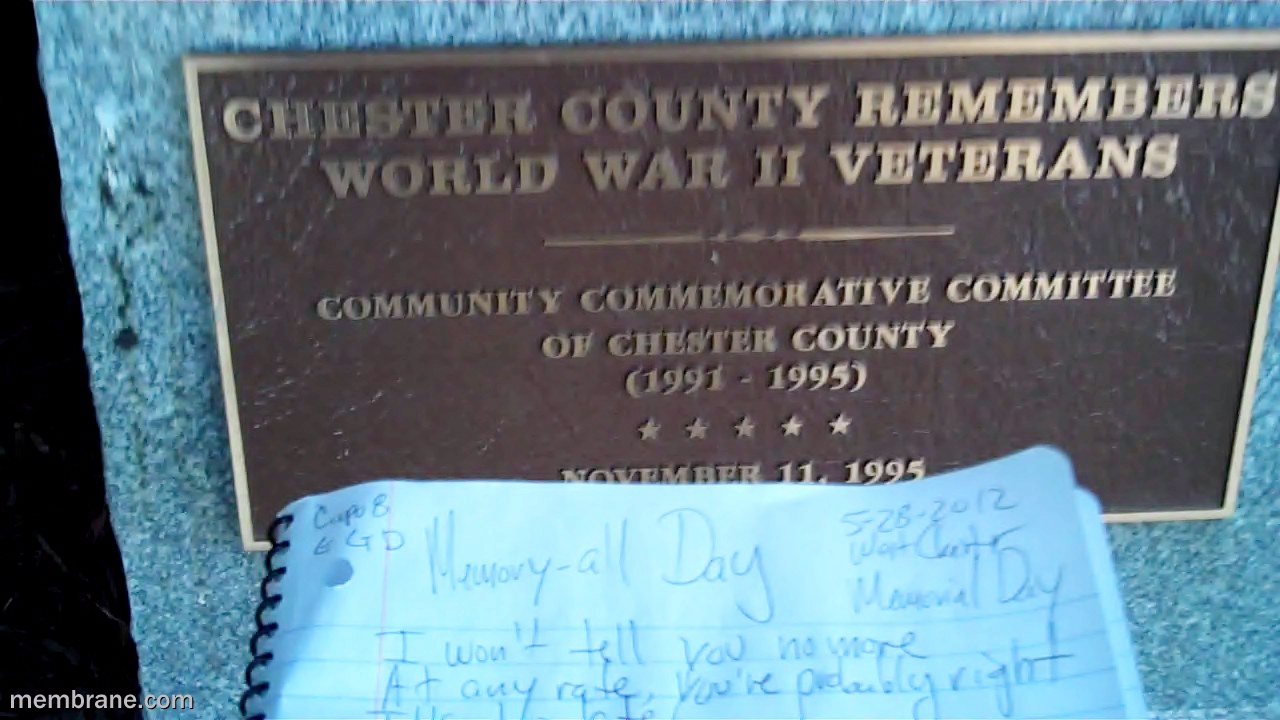 CHESTER COUNTY REMEMBERS
WORLD WAR II VETERANS
COMMUNITY COMMEMORATIVE COMMITTEE
OF CHESTER COUNTY
(1991 - 1995)
NOVEMBER 11, 1995
G D
Memory-all Day
5-28-2012
West Chester
Memorial Day
I won't tell you no more
At any rate, you're probably right
membrane.com